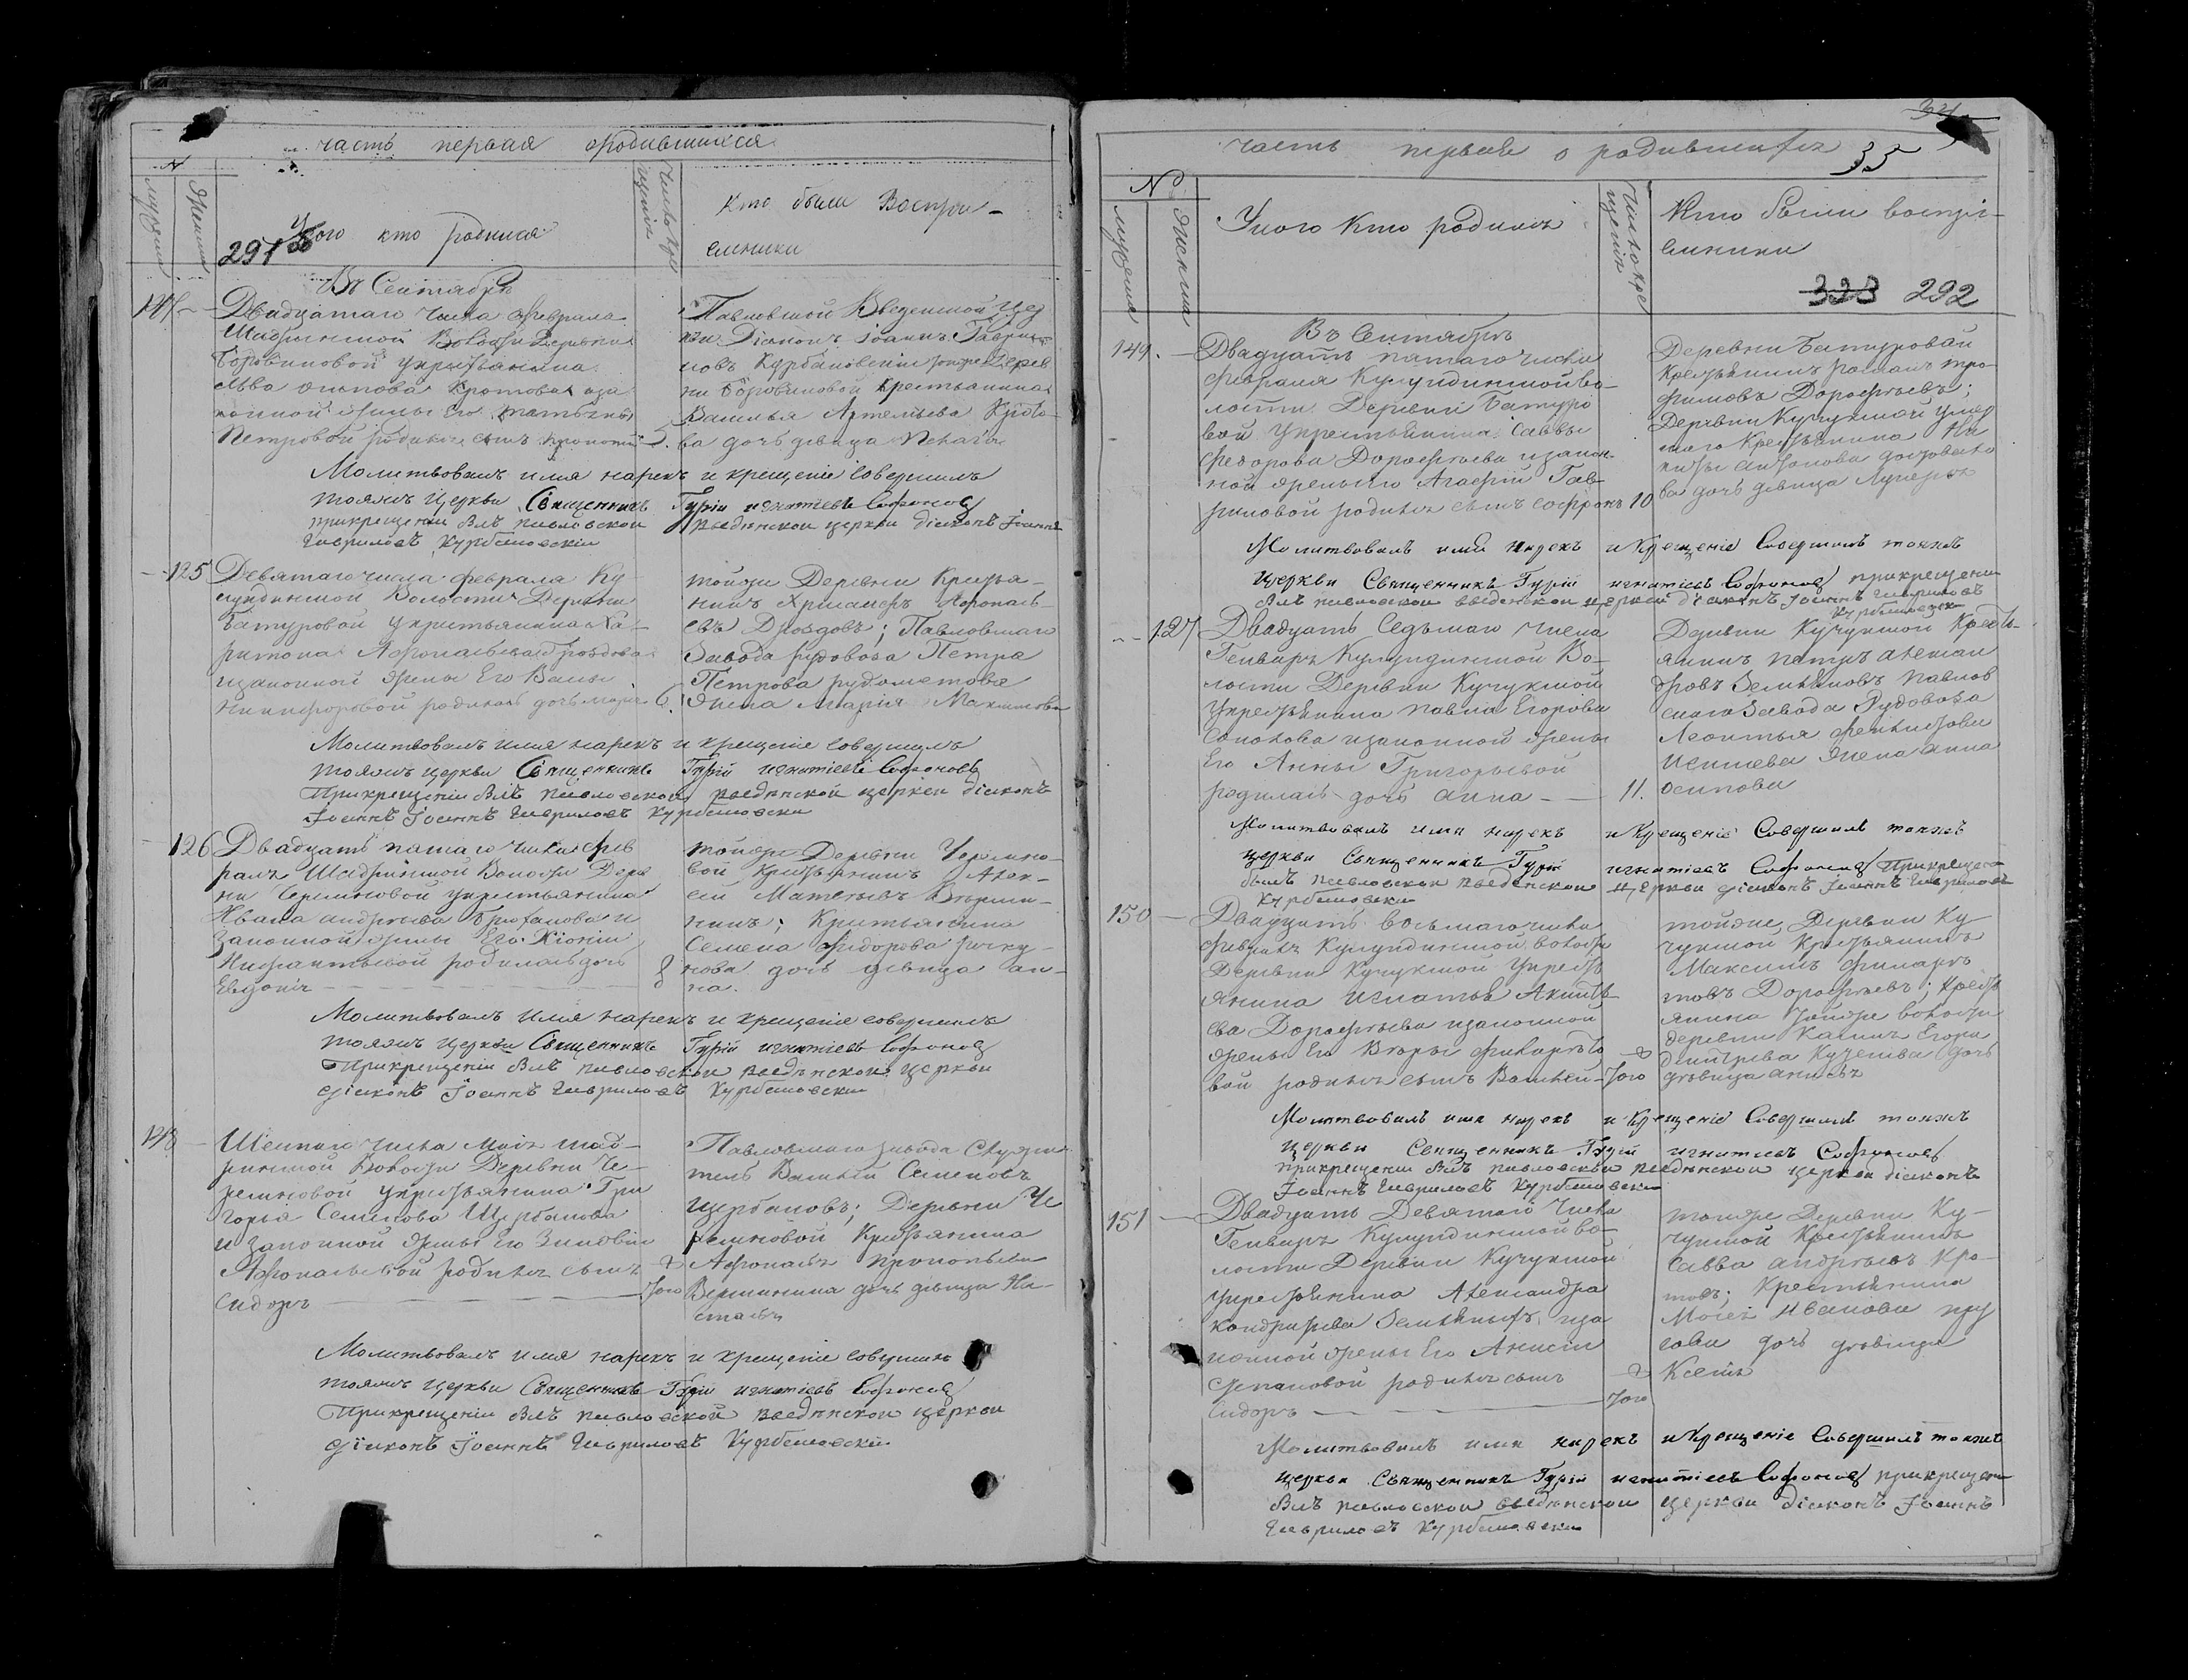 часть первая ородившихся
№
мужеска
женска
Укого кто родился
291
Число кре
щенія
кто были Воспри-
емники
Въ Сентябрѣ
147
Двадцатаго числа февраля
Шадринской Волости Деревни
Боровиковой укрестьянина
осипова Кротова иза
конной жены Его Татьяны
Петровой родился сынъ
5.
Павловской Введенской Цер
кви Діаконъ Іоаннъ Гаври
ловъ Курбановскій Дерев
ни Боровиковой Крестьянина
Василья Артемьева
ва дочь девица Пелагія
Молитвовалъ имя нарекъ и крещеніе совершилъ
тояжъ Церкви Священникъ Гурій игнатіевъ Софоновъ
прикрещеніи былъ павловской введенской церкви діаконъ Іоаннъ
Гавриловъ Курбановскій
125
Девятаго числа февраля Ку
лундинской Волости Деревни
Батуровой укрестьянина Ха-
ритона Афонасьева Дроздова
изаконной жены Его Вассы
Никифоровой родилась дочь марія
6.
тойже Деревни Кресья-
нинъ Афонась-
евъ Дроздовъ; Павловскаго
Завода рудовоза Петра
Петрова рудометова
жена Марія Максимова
Молитвовалъ имя нарекъ и крещеніе совершилъ
тояжъ церкви Священникъ Гурій игнатіевъ Софоновъ
Прикрещеніи былъ павловской введенской церкви діаконъ
Іоаннъ Іоаннъ Гавриловъ Курбановски
126
Двадцать пятаго числа фев
раля Шадринской Волости Дерев
ни Черемновой укрестьянина
Ивана андреева и
Законной жены Его Хіоніи
родилась дочь
Евдокія
8
тойже Деревни Черемно-
вой Крестьянинъ Алек-
ей Матвеевъ
нинъ; Крестьянина
Семена Федорова
нова дочь девица ан-
на.
Молитвовалъ имя нарекъ и крещеніе совершилъ
тояжъ церкви Священникъ Гурій игнатіевъ Софоновъ
Прикрещеніи былъ павловской введенской церкви
діаконъ Іоаннъ Гавриловъ Курбановски
148
Шестаго числа Маія шад-
ринской Волости Деревни Че-
ремновой укрестьянина Гри
горья Семенова Щербакова
и законной жены Его Зиновіи
Афонасьевой родился сынъ
Сидоръ
того
Павловскаго завода Служи
тель Василій Семеновъ
Щербаковъ; Деревни Че
ремновой Крестьянина
Афонасья Прокопьева
Вершинина дочь девица На-
стасья
Молитвовалъ имя нарекъ и крещеніе совершилъ
тояжъ церкви Священникъ Гурій игнатіевъ Софоновъ
Прикрещеніи былъ павловской введенской церкви
діаконъ Іоаннъ Гавриловъ Курбановски
часть первая о родившихся
35
№
мужеска
женска
Укого Кто родился
Число кре
щенія
Кто были воспрі-
емники
323 292
Въ Сентябрѣ
149.
Двадцать пятаго числа
февраля Кулундинской во-
лости Деревни Батуро
вой Укрестьянина Саввы
федорова Дорофеева изакон
ной жены его Агафіи Гав-
риловой родился сынъ софронъ
10
Деревни Батуровой
Крестьянинъ романъ тро-
фимовъ Дорофеевъ;
Деревни Кучукской умер
шаго Крестьянина Ни
киты
ва дочь девица Лукерья
Молитвовалъ имя нарекъ и Крещеніе Совершилъ тояжъ
церкви Священникъ Гурій игнатіевъ Софоновъ прикрещени
былъ павловской введенской церкви діаконъ Іоаннъ Гавриловъ
Курбановски
127
Двадцать Седьмаго числа
Генваря Кулундинской Во-
лости Деревни Кучукской
Укрестьянина Павла Егорова
изаконной жены
Его Анны Григорьевой
родилась дочь анна
11.
Деревни Кучукской Кресть-
янинъ петръ алексан
дровъ Земляновъ Павлов
скаго завода Рудовоза
Леонтья
жена анна
осипова
Молитвовалъ имя нарекъ и Крещеніе Совершилъ тояжъ
церкви Священникъ Гурій игнатіевъ Софоновъ Прикрещени
былъ павловской введенской церкви діаконъ Іоаннъ Гавриловъ
Курбановски
150
Двадцать восьмаго числа
февраля Кулундинской волости
Деревни Кучукской Укресть
янина Игнатья
ева Дорофеева изаконной
жены Его Веры
вой родился сынъ Василей
того
тойже Деревни Ку
чукской Крестьянинъ
Максимъ филаре
товъ Дорофеевъ; Кресть
янина тойже волости
деревни Егора
дмитрева дочь
девица анисья
Молитвовалъ имя нарекъ и Крещеніе Совершилъ тояжъ
Церкви Священникъ Гурій игнатіевъ Софоновъ
прикрещеніи былъ павловской введенской церкви діаконъ
Іоаннъ Гавриловъ Курбановски
151
Двадцать Девятаго Числа
Генваря Кулундинской во-
лости Деревни Кучукской
укрестьянина Александра
кондратьева иза
конной жены Его Анисіи
Степановой родился сынъ
Сидоръ
того
тойже Деревни Ку-
чукской Крестьянинъ
Савва андреевъ Кро-
товъ; Крестьянина
Моисея Иванова
дочь девица
Ксенія
Молитвовалъ имя нарекъ и Крещеніе Совершилъ тояжъ
церкви Священникъ Гурій игнатіевъ Софоновъ прикрещени
былъ павловской введенской церкви діаконъ Іоаннъ
Гавриловъ Курбановски